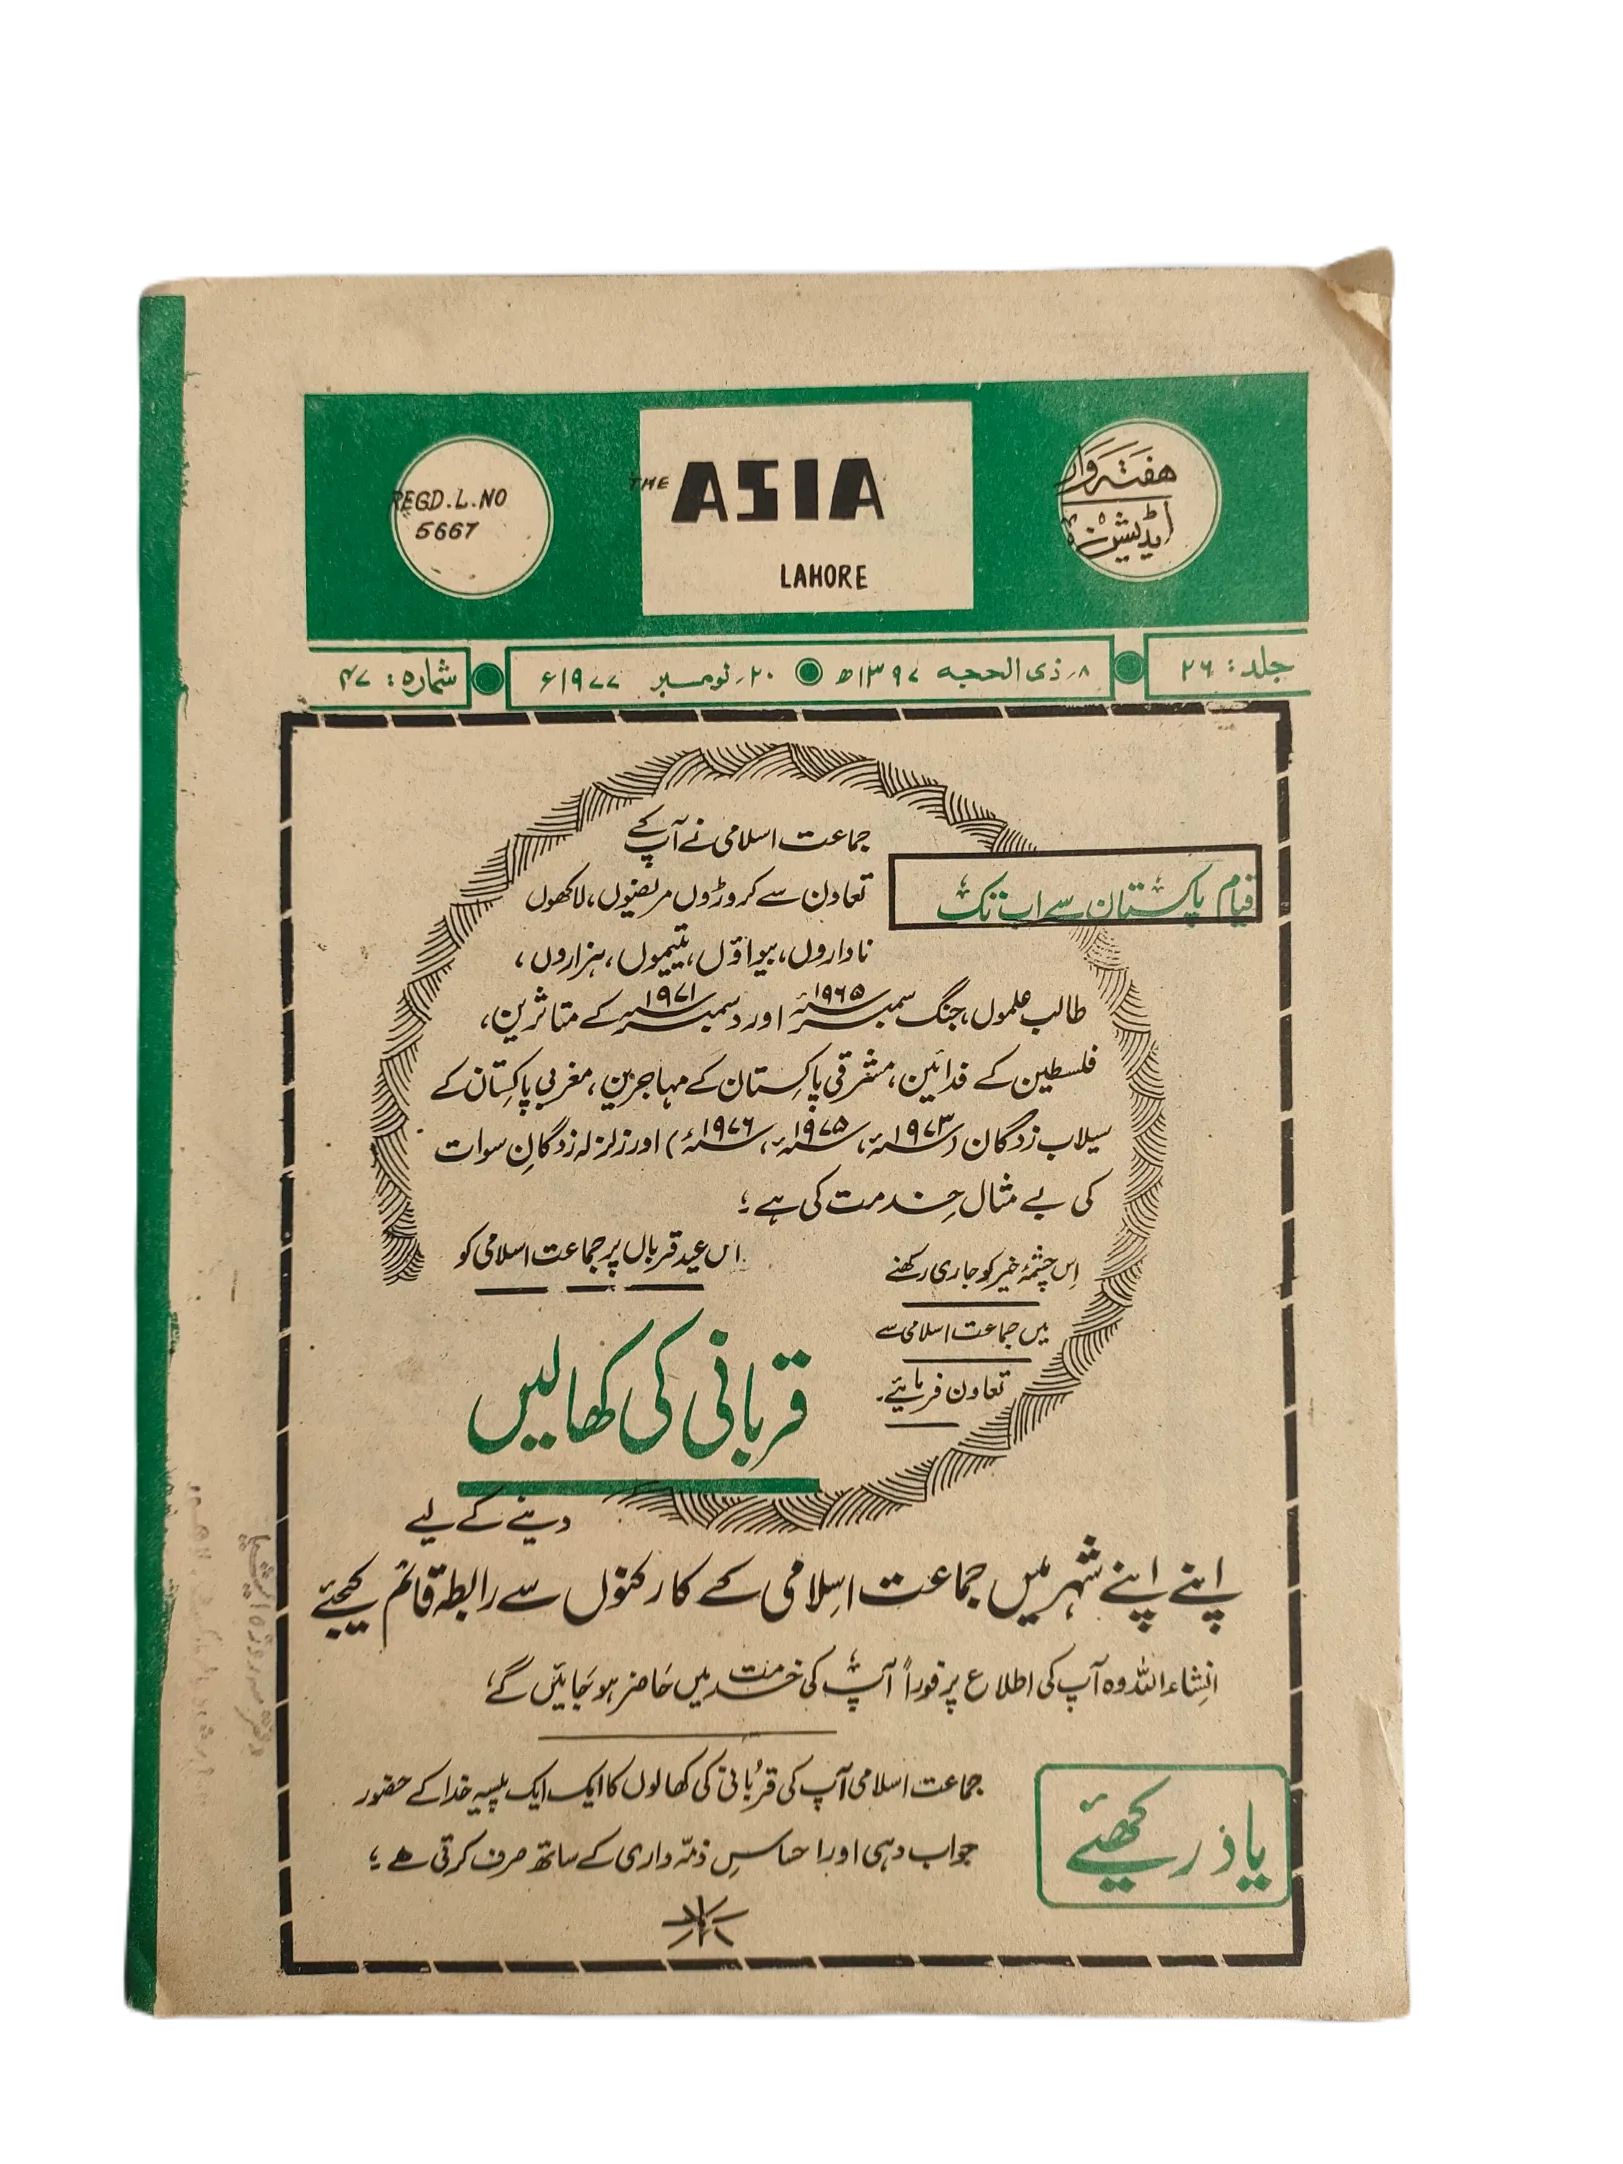 REGD.L.NO
5667
THE ASIA
LAHORE
ہفتہ وار
ایڈیشن
جلد: ۲۶
۸؍ ذی الحجہ ۱۳۹۷ھ ۲۰؍ نومبر ۱۹۷۷ء
شمارہ: ۴۷
قیام پاکستان سے اب تک
جماعت اسلامی نے آپ کے
تعاون سے کروڑوں مریضوں، لاکھوں
ناداروں، بیواؤں، یتیموں، ہزاروں،
طالب علموں، جنگ ستمبر ۱۹۶۵ء اور دسمبر ۱۹۷۱ء کے متاثرین،
فلسطین کے فدائین، مشرقی پاکستان کے مہاجرین، مغربی پاکستان کے
سیلاب زدگان (۱۹۷۳ء، ۱۹۷۵ء، ۱۹۷۶ء) اور زلزلہ زدگانِ سوات
کی بے مثال خدمت کی ہے؛
اِس چشمۂ خیر کو جاری رکھنے
میں جماعت اسلامی سے
تعاون فرمایئے۔
اس عید قرباں پر جماعت اسلامی کو
قربانی کی کھالیں
دینے کے لیے
اپنے اپنے شہر میں جماعت اسلامی کے کارکنوں سے رابطہ قائم کیجئے
انشاء اللہ وہ آپ کی اطلاع پر فوراً آپ کی خدمت میں حاضر ہو جائیں گے؛
یاد رکھئے
جماعت اسلامی آپ کی قربانی کی کھالوں کا ایک ایک پیسہ خدا کے حضور
جواب دہی اور احساسِ ذمّہ داری کے ساتھ صرف کرتی ہے؛